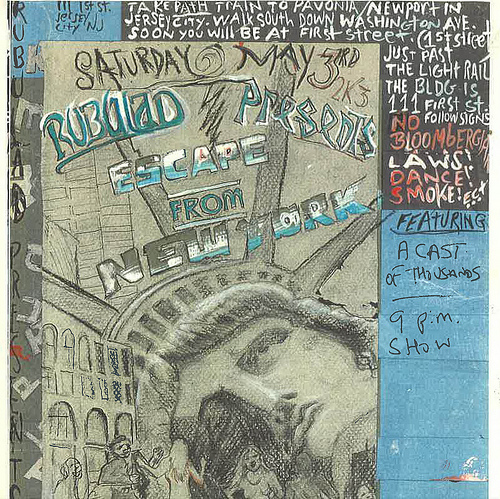 111 1st St.
JERSEY
CITY NJ
TAKE PATH TRAIN TO PAVONIA/NEWPORT IN
JERSEY CITY. WALK SOUTH DOWN WASHINGTON AVE.
SOON YOU WILL BE AT FIRST STREET. (1st street
JUST PAST
THE LIGHT RAIL
THE BLDG IS
111 FIRST ST.
FOLLOW SIGNS
NO
BLOOMBERGIAN
LAWS!
DANCE!
SMOKE!
SATURDAY MAY 3RD
2K3
RUBULAD PRESENTS
ESCAPE
FROM
NEW YORK
FEATURING
A CAST
OF THOUSANDS
9 p.m.
SHOW